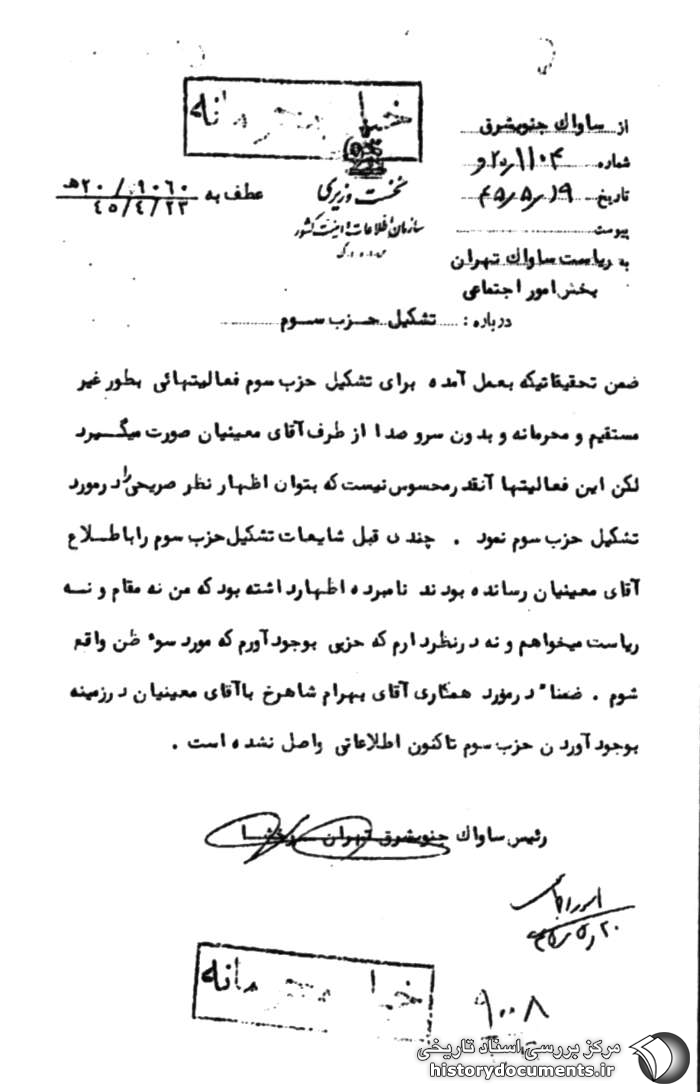 از ساواك جنوبشرق
شماره ۲۰٫۱۱۰۴٫و
تاریخ ۴۵٫۵٫۱۹
پیوست
خیلی محرمانه
نخست وزیری
سازمان اطلاعات و امنیت کشور
عطف به ۹۰۶۰ / ۲۰ ه
۴۵/۴/۲۳
به ریاست ساواك تهران
بخش امور اجتماعی
درباره : تشکیل حزب سوم
ضمن تحقیقاتیکه بعمل آمده برای تشکیل حزب سوم فعالیتهائی بطور غیر
مستقیم و محرمانه و بدون سرو صدا از طرف آقای معینیان صورت میگیرد
لکن این فعالیتها آنقدر محسوس نیست که بتوان اظهار نظر صریحی را درمورد
تشکیل حزب سوم نمود . چندی قبل شایعات تشکیل حزب سوم را باطلاع
آقای معینیان رسانده بودند نامبرده اظهارداشته بود که من نه مقام و نه
ریاست میخواهم و نه درنظر دارم که حزبی بوجود آورم که مورد سوء ظن واقع
شوم . ضمناً درمورد همکاری آقای بهرام شاهرخ باآقای معینیان درزمینه
بوجود آوردن حزب سوم تاکنون اطلاعاتی واصل نشده است .
رئیس ساواك جنوبشرق تهران
۴۵٫۵٫۲۰
۹۰۰۸
مرکز بررسی اسناد تاریخی
historydocuments.ir